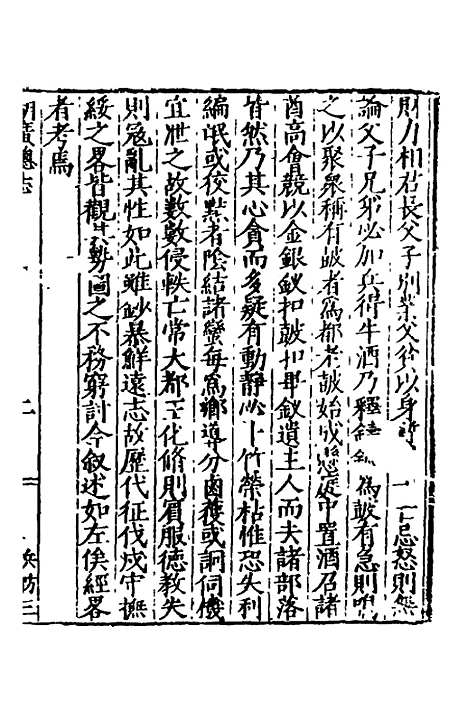 則力相君長父子別業父貧以身 忌怒則無
論父子兄弟必加兵得牛酒乃釋 爲鼓有急則鳴
之以聚衆稱有鼓者爲都老鼓始成懸庭中置酒召諸
酋高會競以金銀釵扣鼓扣畢釵遺主人而夫諸部落
皆然乃其心貪而多疑有動靜必卜竹筞枯惟恐失利
編氓或佼黠者陰結諸蠻每爲鄉導分鹵獲或詗伺機
宜泄之故數數侵軼亡常大都王化脩則賔服德教失
則冦亂其性如此雖鈔暴鮮遠志故歷代征伐戍守撫
綏之畧皆觀其勢圖之不務窮討今叙述如左俟經畧
者考焉
湖廣總志 二 兵防三